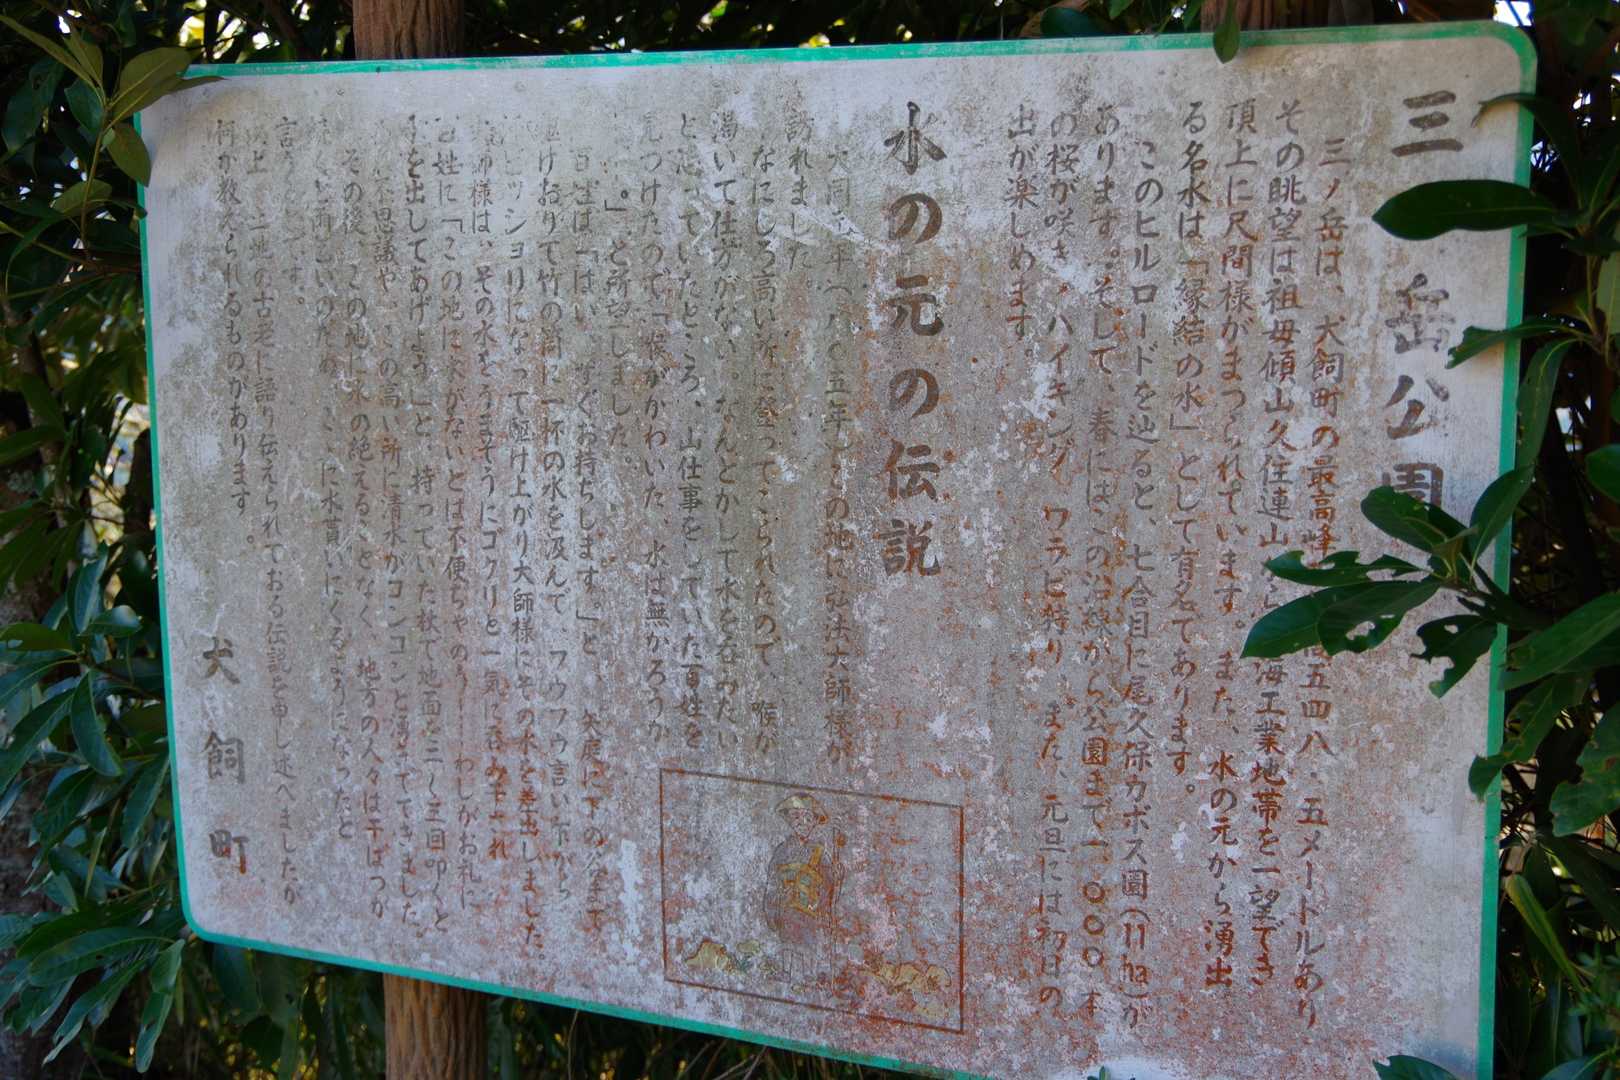 三ノ岳公園
三ノ岳は、犬飼町の最高峰 五四八・五メートルあり
その眺望は祖母傾山久住連山 海工業地帯を一望でき
頂上に尺間様がまつられています。また、水の元から湧出
る名水は「縁結の水」として有名であります。
このヒルロードを辿ると、七合目に尾久保カボス園(11ha)が
あります。そして、春にはこの沿線から公園まで一、〇〇〇本
の桜が咲き、ハイキング、ワラビ狩り、また、元旦には初日の
出が楽しめます。
水の元の伝説
大同 年(八〇五年)この地に弘法大師様が
訪れました。
なにしろ高い所に登ってこられたので、喉が
渇いて仕方がない。なんとかして水を呑みたい
と思っていたところ、山仕事をしていた百姓を
見つけたので「喉がかわいた、水は無かろうか
。」と所望しました。
百姓は「はい、すぐお持ちします。」と、矢庭に下の谷まで
駆けおりて竹の筒に一杯の水を汲んで、フウフウ言い乍ら
ビッショリになって駆け上がり大師様にその水を差出しました。
大師様は、その水をうまそうにゴクリと一気に呑み干され
百姓に「この地に水がないとは不便ぢゃのう わしがお礼に
水を出してあげよう」と、持っていた杖で地面を二〜三回叩くと
不思議や、この高い所に清水がコンコンと湧きでてきました。
その後、この地に水の絶えることなく、地方の人々は干ばつが
続くと雨こいのため、ここに水貰いにくるようになったと
言う です。
以上 土地の古老に語り伝えられておる伝説を申し述べましたが
何か教えられるものがあります。
犬飼町